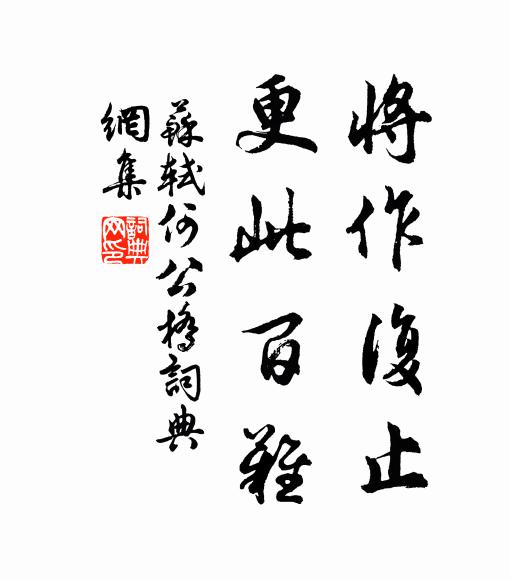 將作復止
更此百難
蘇軾何公橋詞典
網集
詞典
网印